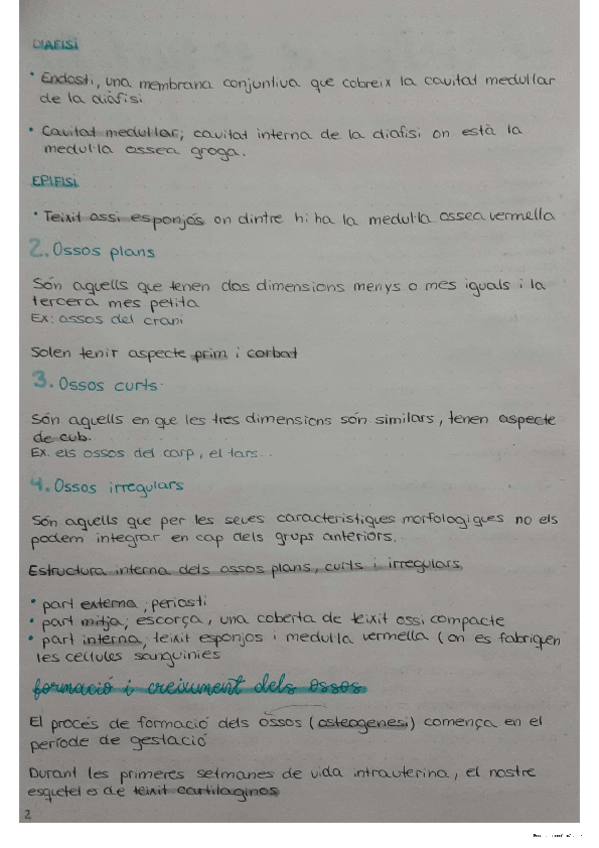 DIAFISI
• Endosti, una membrana conjuntiva que cobreix la cavitat medul·lar
de la diàfisi
• Cavitat medul·lar; cavitat interna de la diafisi on està la
medul·la ossea groga.
EPIFISI
• Teixit ossi esponjós on dintre hi ha la medul·la ossea vermella
2. Ossos plans
Són aquells que tenen dos dimensions menys o mes iguals i la
tercera mes petita
Ex: ossos del crani
Solen tenir aspecte prim i corbat
3. Ossos curts
Són aquells en que les tres dimensions són similars, tenen aspecte
de cub.
Ex. els ossos del carp, el tars...
4. Ossos irregulars
Són aquells que per les seves caracteristiques morfologiques no els
podem integrar en cap dels grups anteriors.
Estructura interna dels ossos plans, curts i irregulars.
• part externa; periosti
• part mitja; escorça, una coberta de teixit ossi compacte
• part interna; teixit esponjos i medul·la vermella (on es fabriquen
les cel·lules sanguinies
formació i creixument dels ossos
El procés de formació dels ossos (osteogenesi) comença en el
període de gestació
Durant les primeres setmanes de vida intrauterina, el nostre
esquelet es de teixit cartilaginos
2